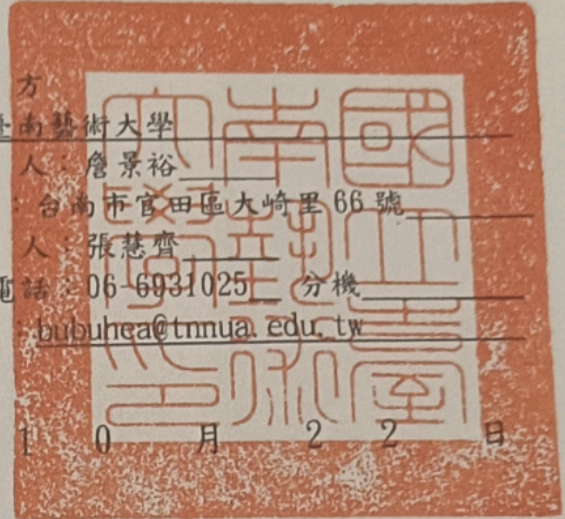 方
臺南藝術大學
人：詹景裕
：台南市官田區大崎里 66 號
人：張慧齊
電話：06-6931025 分機
：bubuhea@tnnua.edu.tw
1 0 月 2 2 日
國立臺南藝術大學印